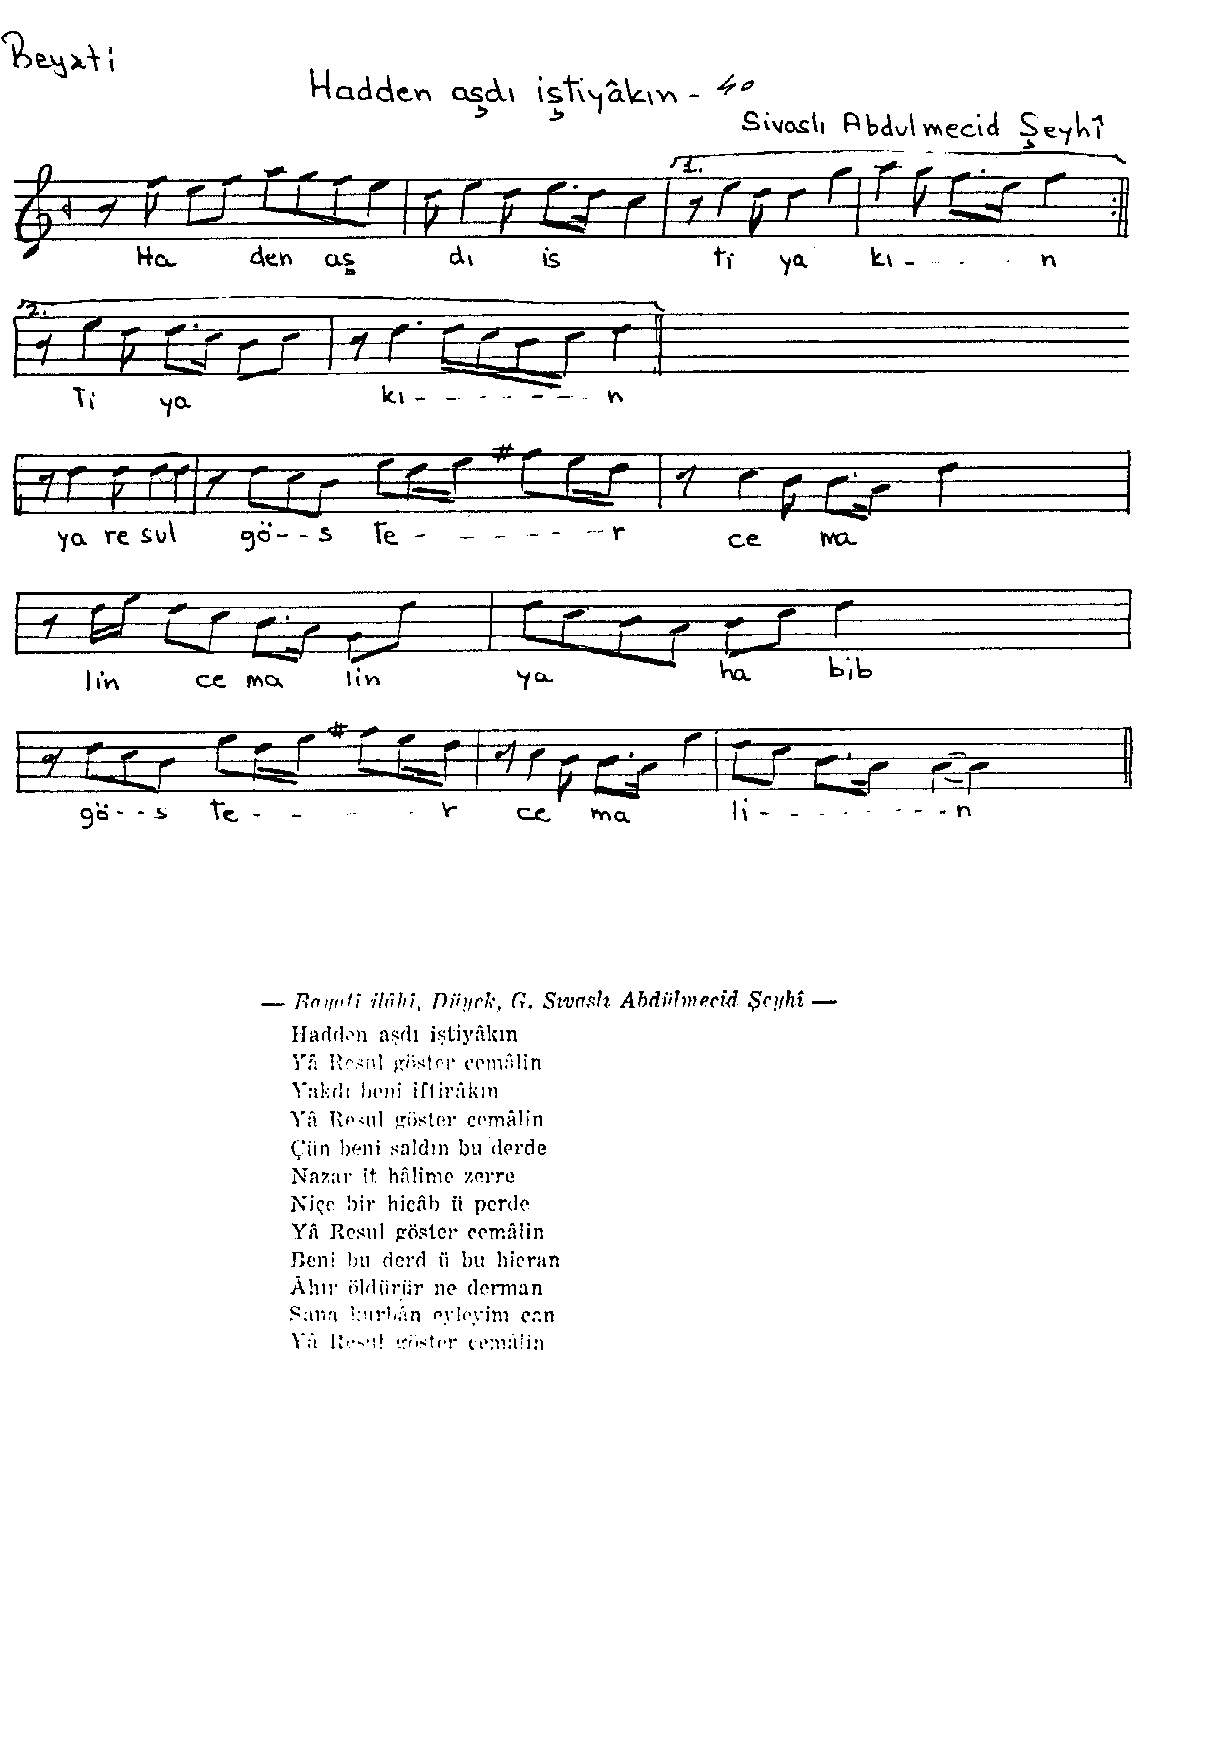 Beyati
Hadden aşdı iştiyâkın - 40
Sivaslı Abdulmecid Şeyhî
1.
Ha den aş dı is ti ya kı - - - - n
2.
Ti ya kı - - - - - - - n
ya re sul gö - - s te - - - - - - r ce ma
lin ce ma lin ya ha bib
gö - - s te - - - r ce ma li - - - - - - - n
— Bayati ilâhi, Düyek, G. Sıvaslı Abdülmecid Şeyhî —
Hadden aşdı iştiyâkın
Yâ Resul göster cemâlin
Yakdı beni iftirâkın
Yâ Resul göster cemâlin
Çün beni saldın bu derde
Nazar it hâlime zerre
Niçe bir hicâb ü perde
Yâ Resul göster cemâlin
Beni bu derd ü bu hicran
Âhır öldürür ne derman
Sana kurbân eyleyim can
Yâ Resul göster cemâlin